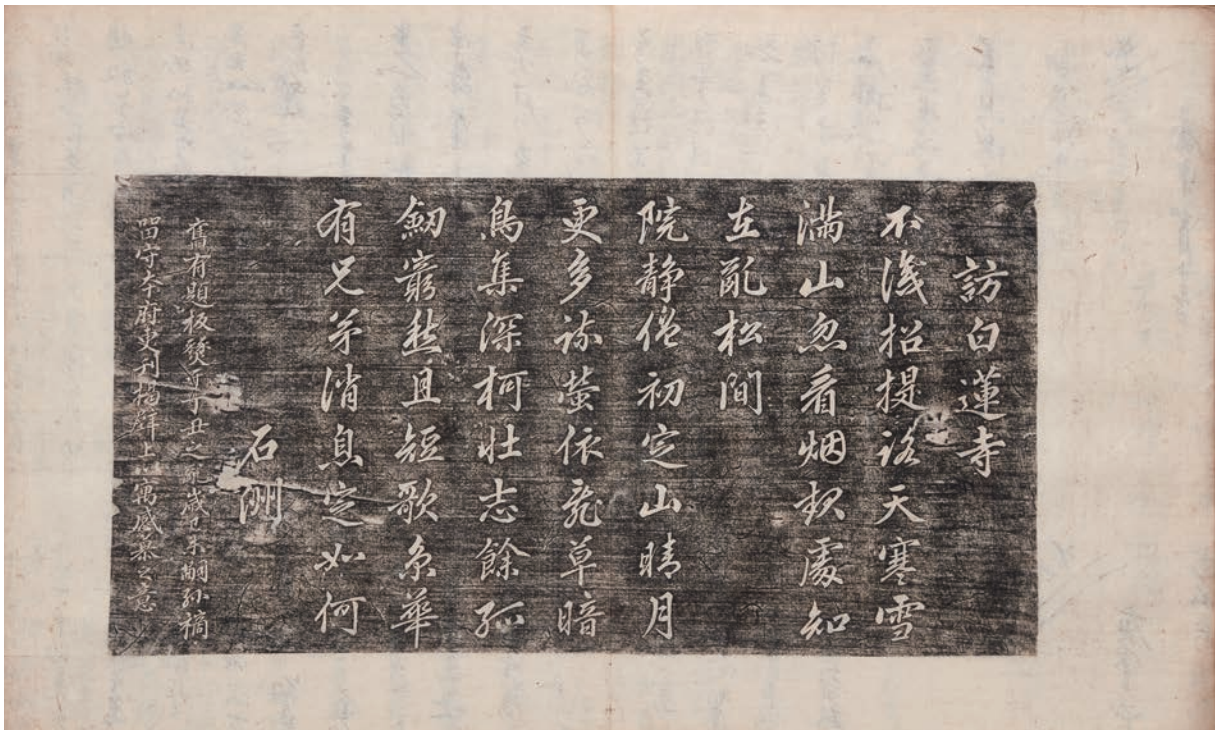 訪白蓮寺
不識招提路天寒雪
滿山忽看烟起處知
在亂松間
院靜僧初定山晴月
更多疎螢依亂草暗
鳥集深柯壯志餘孤
劒窮愁且短歌京華
有兄弟消息定如何
石洲
舊有題板燹于子丑之亂歲己未嗣孫
留守本府更刊揭壁上以寓感慕之意